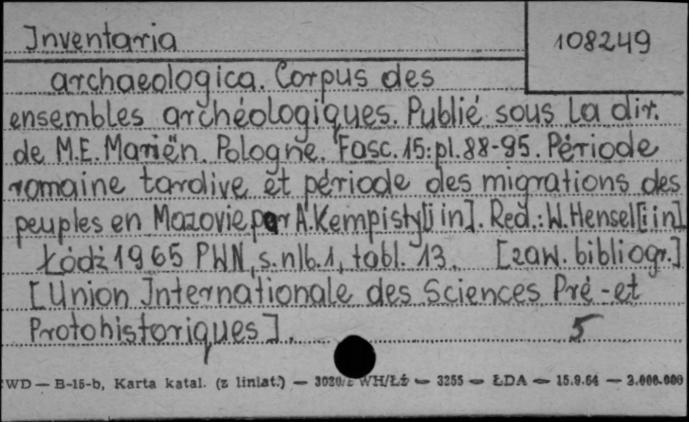 Inventaria
108249
archaeologica. Corpus des
ensembles archéologiques. Publié sous la dir.
de M.E. Mariën. Pologne. Fasc. 15: pl. 88-95. Période
romaine tardive et période des migrations des
peuples en Mazovie par A. Kempisty [i in]. Red.: W. Hensel [i in].
Łódź 1965 PWN, s. nlb. 1, tabl. 13. [zaw. bibliogr.]
[Union Internationale des Sciences Pré-et
Protohistoriques].
5
WD — B-15-b, Karta katal. (z liniat.) — WH/Łź — 3255 — ŁDA — 15.9.64 — 2.000.000